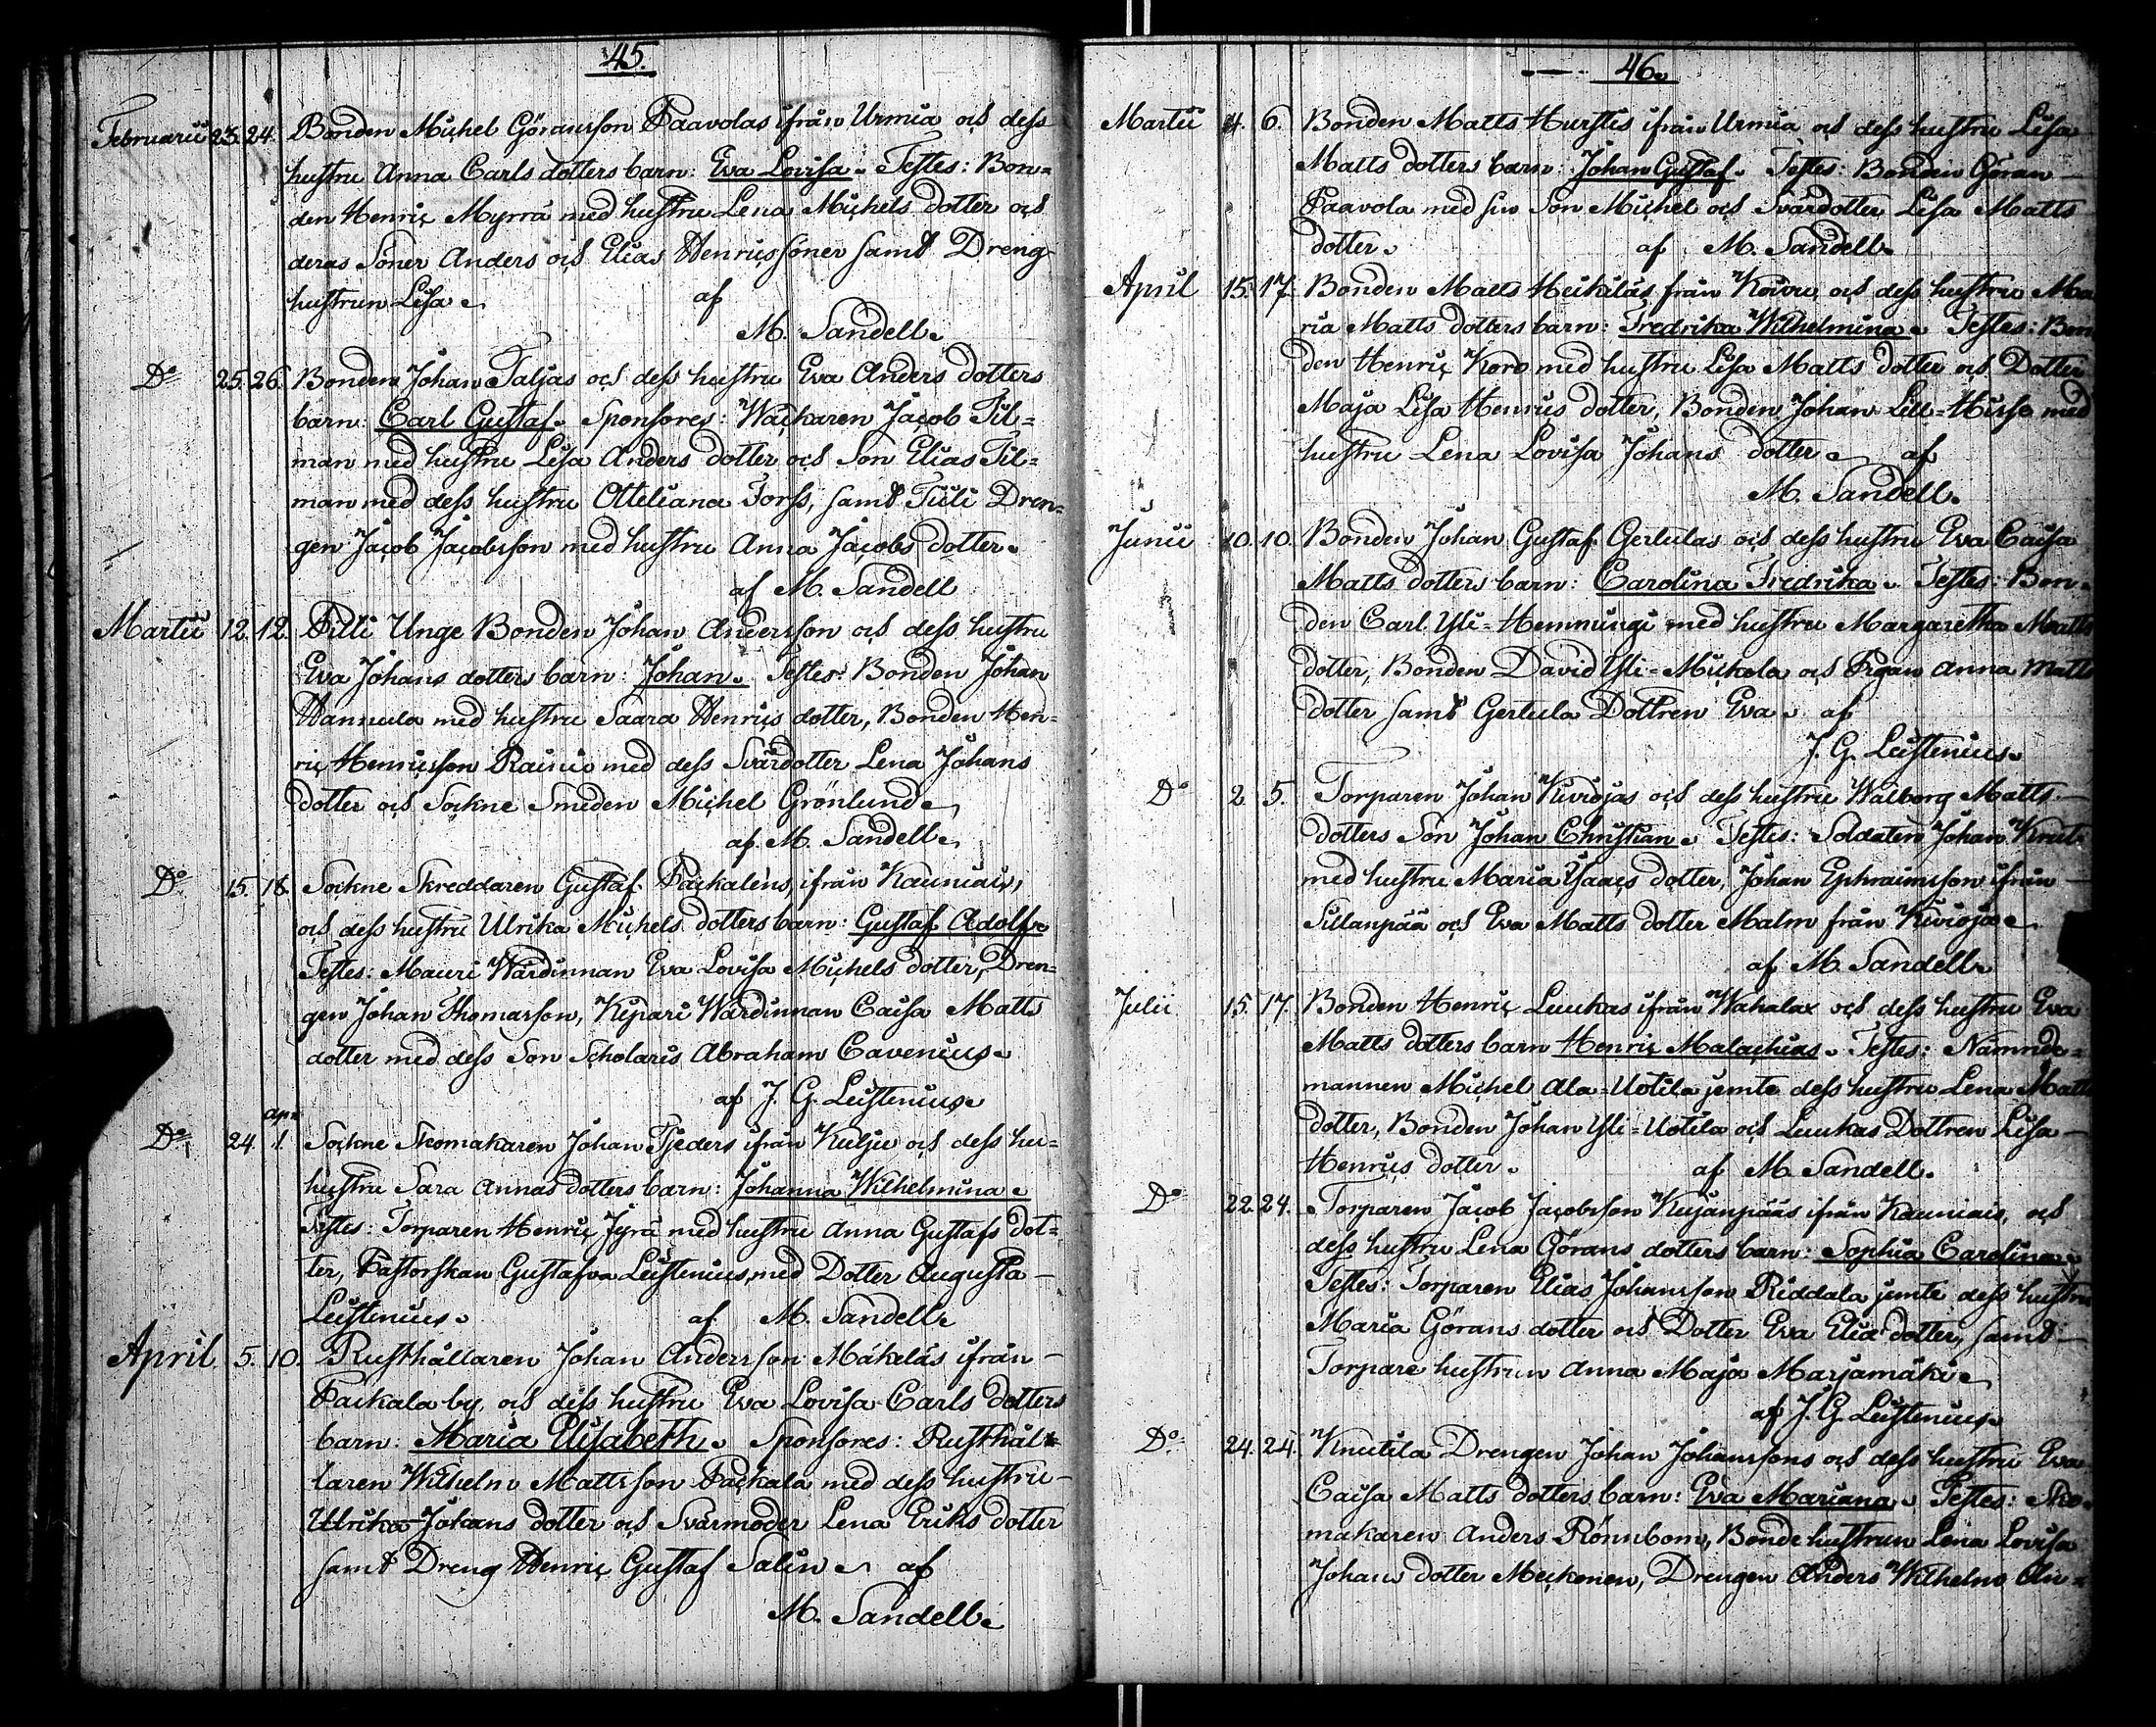 45.
Februarii 23. 24. Bonden Michel Göransson Paavolas ifrån Urmia och dess
hustru Anna Carls dotters barn: Eva Lovisa. Testes: Bon=
den Henric Myrrä med hustru Lena Michels dotter och
deras Söner Anders och Elias Henricssöner samt Dreng
hustrun Lisa. af
M. Sandell.
Do 25. 26. Bonden Johan Taljas och dess hustru Eva Anders dotters
barn: Carl Gustaf. Sponsores: Wäckaren Jacob Til=
man med hustru Lisa Anders dotter och Son Elias Til=
man med dess hustru Otteliana Forss, samt Tiili Dren=
gen Jacob Jacobsson med hustru Anna Jacobs dotter.
af M. Sandell
Martii 12. 12. Pilli Unge Bonden Johan Andersson och dess hustru
Eva Johans dotters barn: Johan. Testes: Bonden Johan
Hannula med hustru Saara Henrics dotter, Bonden Hen=
ric Henricsson Rainio med dess Svärdotter Lena Johans
dotter och Sockne Smeden Michel Grönlund.
af M. Sandell.
Do 15. 18. Sockne Skreddaren Gustaf Packaléns ifrån Kauniais,
och dess hustru Ulrika Michels dotters barn: Gustaf Adolf.
Testes: Mauri Wärdinnan Eva Lovisa Michels dotter, Dren=
gen Johan Thomasson, Kipari Wärdinnan Caisa Matts
dotter med dess Son Scholaris Abraham Cavenius.
af J. G. Leistenius.
apr.
Do 24. 1. Sockne Skomakaren Johan Tjeders ifrån Kulju och dess hu=
hustru Sara Annas dotters barn: Johanna Wilhelmina.
Testes: Torparen Henric Jyrä med hustru Anna Gustafs dot=
ter, Pastorskan Gustafva Leistenius, med Dotter Augusta
Leistenius. af M. Sandell.
April 5. 10. Rusthållaren Johan Andersson Mäkeläs ifrån
Packala by, och dess hustru Eva Lovisa Carls dotters
barn: Maria Elisabeth. Sponsores: Rusthål=
laren Wilhelm Mattsson Packala med dess hustru
Ulrika Johans dotter och Svärmoder Lena Eriks dotter
samt Dreng Henric Gustaf Salin. af
M. Sandell.
46.
Martii 4. 6. Bonden Matts Hurstis ifrån Urmia och dess hustru Lisa
Matts dotters barn: Johan Gustaf. Testes: Bonden Göran
Paavola med sin Son Michel och Svärdotter Lisa Matts
dotter. af M. Sandell.
April 15. 17. Bonden Matts Heikiläs från Koivu, och dess hustru Ma
ria Matts dotters barn: Fredrika Wilhelmina. Testes: Bon
den Henric Koro med hustru Lisa Matts dotter och Dotter
Maja Lisa Henrics dotter, Bonden Johan Lill=Hisso med
hustru Lena Lovisa Johans dotter. af
M. Sandell.
Junii 10. 10. Bonden Johan Gustaf Gertulas och dess hustru Eva Caisa
Matts dotters barn: Carolina Fredrika. Testes: Bon=
den Carl Yli=Hemmingi med hustru Margaretha Matts
dotter, Bonden David Yli=Mickola och Pigan Anna Matts
dotter samt Gertula Dottren Eva. af
J. G. Leistenius.
Do 2. 5. Torparen Johan Kiviojas och dess hustru Walborg Matts
dotters Son Johan Christian. Testes: Soldaten Johan Knut
med hustru Maria Isaacs dotter, Johan Ephraimsson ifrån
Sillanpää och Eva Matts dotter Malm från Kivioja.
af M. Sandell.
Julii 15. 17. Bonden Henric Luukas ifrån Wahalax och dess hustru Eva
Matts dotters barn Henric Malachias. Testes: Nämnde=
mannen Michel Ala=Uotila jemte dess hustru Lena Matts
dotter, Bonden Johan Yli=Uotila och Luukas Dottren Lisa
Henrics dotter. af M. Sandell.
Do 22. 24. Torparen Jacob Jacobsson Kujanpääs ifrån Kauniais, och
dess hustru Lena Görans dotters barn: Sophia Carolina.
Testes: Torparen Elias Johansson Riddala jemte dess hustru
Maria Görans dotter och Dotter Eva Eliæ dotter, samt
Torpare hustrun Anna Maja Marjamäki.
af J. G. Leistenius.
Do 24. 24. Knutila Drengen Johan Johanssons och dess hustru Eva
Caisa Matts dotters barn: Eva Mariana. Testes: Sko=
makaren Anders Rönnbom, Bonde hustrun Lena Lovisa
Johans dotter Meckonen, Drengen Anders Wilhelm An=